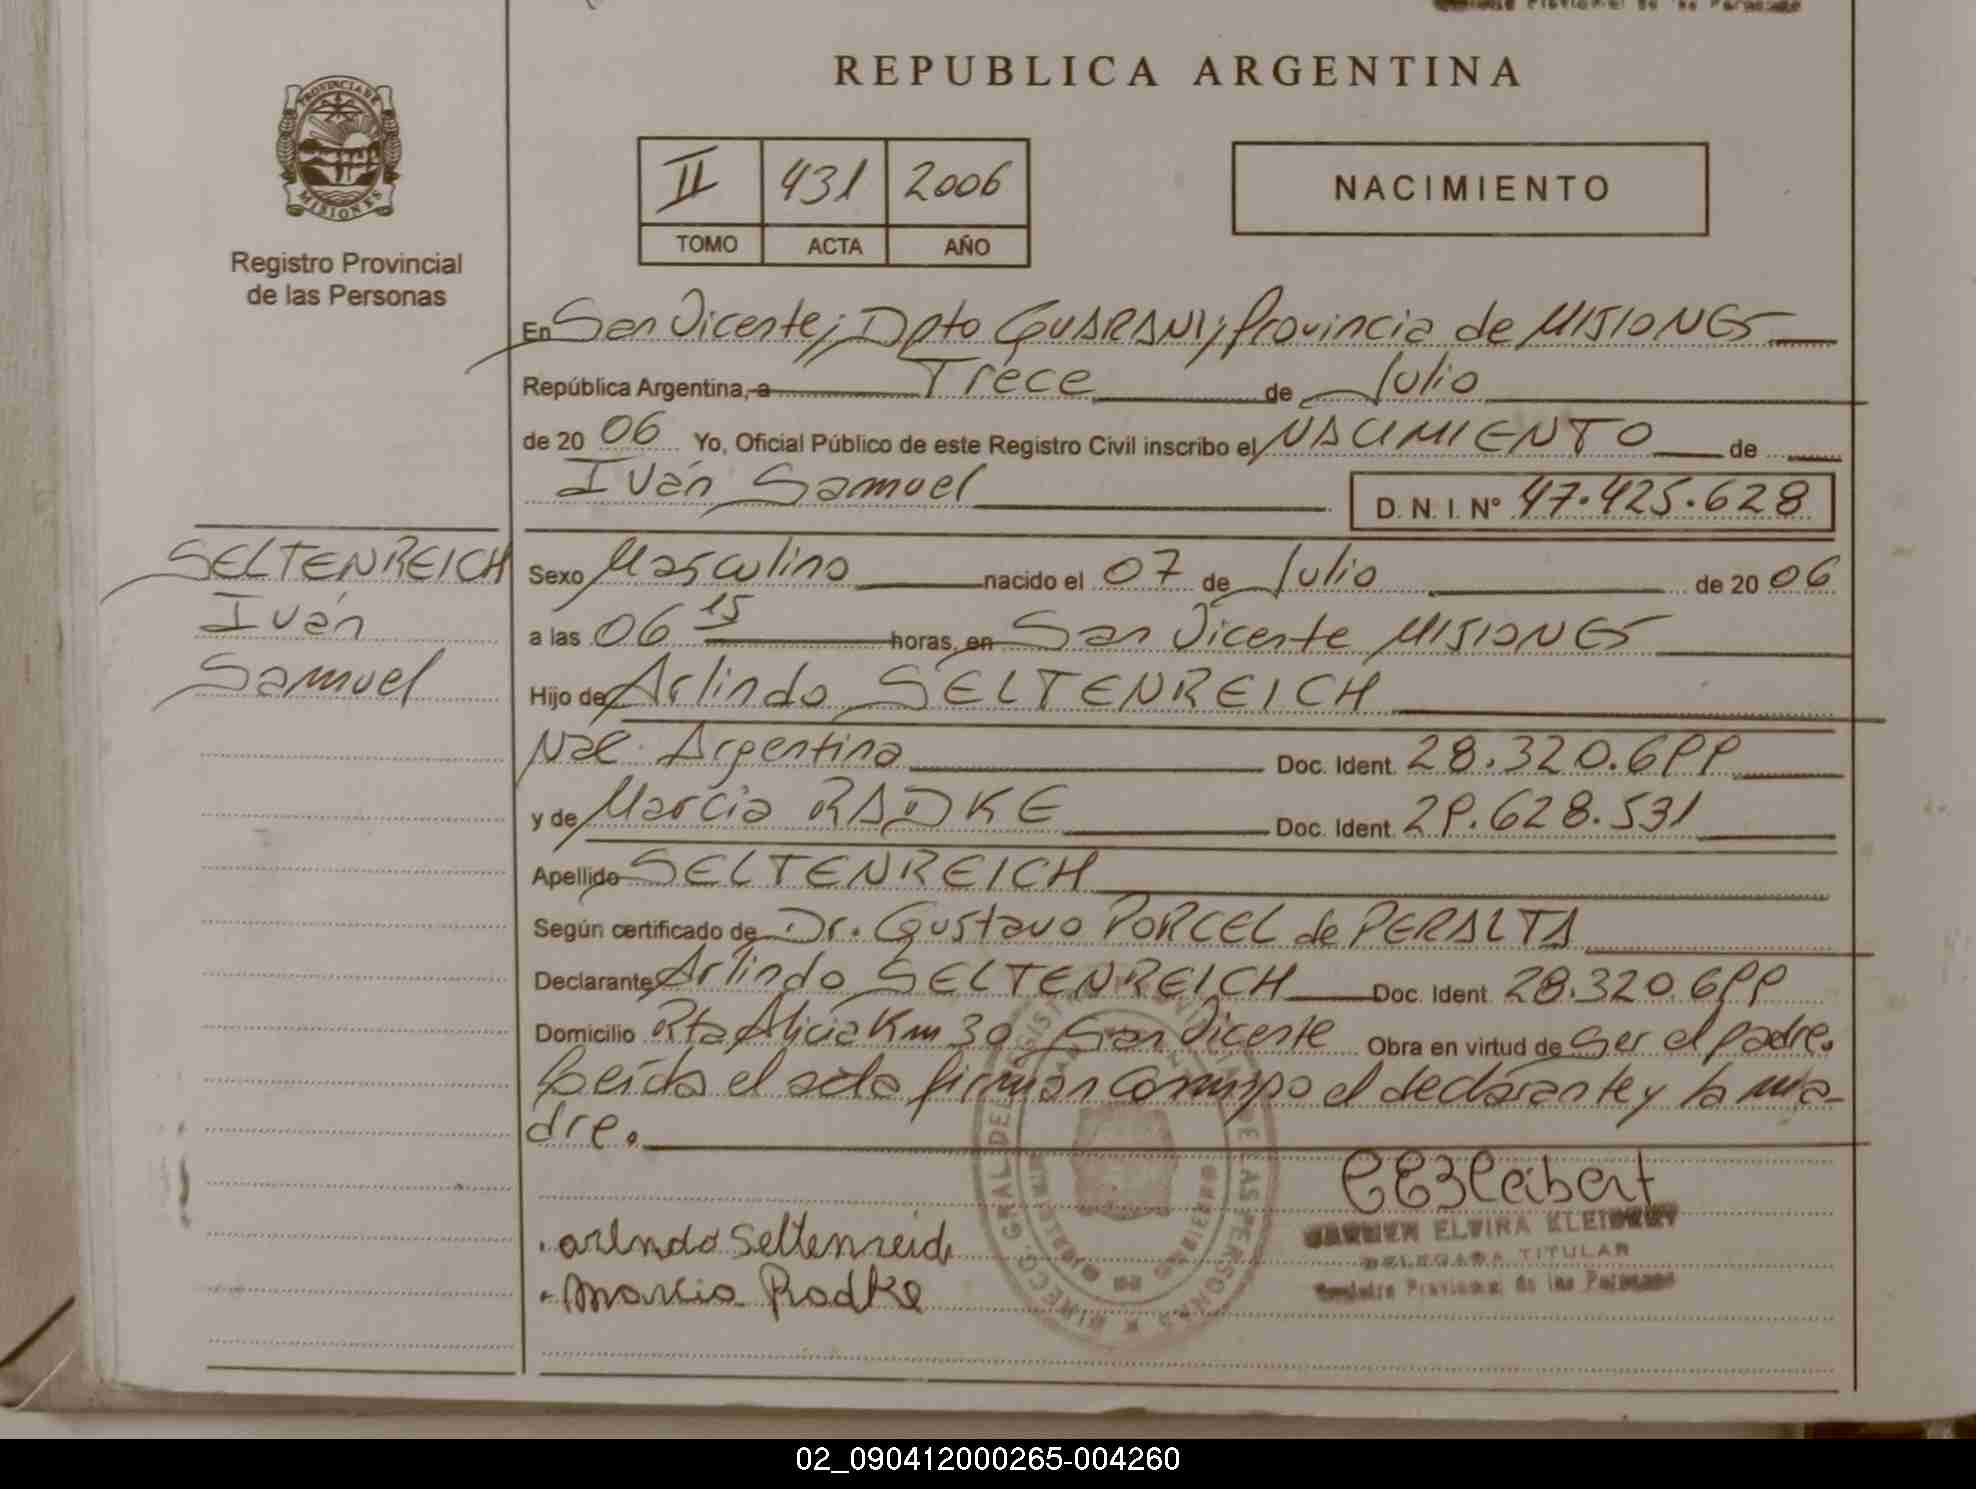 REPUBLICA ARGENTINA
PROVINCIA DE
MISIONES
Registro Provincial
de las Personas
II 431 2006
TOMO ACTA AÑO
NACIMIENTO
En San Vicente, Dpto GUARANI, Provincia de MISIONES
República Argentina, a Trece de Julio
de 20 06 Yo, Oficial Público de este Registro Civil inscribo el NACIMIENTO de
Iván Samuel
D. N. I. Nº 47.425.628
SELTENREICH
Iván
Samuel
Sexo Masculino nacido el 07 de Julio de 20 06
a las 06 15 horas, en San Vicente MISIONES
Hijo de Arlindo SELTENREICH
Nac. Argentina Doc. Ident. 28.320.699
y de Marcia RADKE Doc. Ident. 29.628.531
Apellido SELTENREICH
Según certificado de Dr. Gustavo PORCEL de PERALTA
Declarante Arlindo SELTENREICH Doc. Ident. 28.320.699
Domicilio Rta Alicia Km 30 San Vicente Obra en virtud de ser el padre.
Leída el acta firman conmigo el declarante y la ma-
dre.
arlndo Seltenreich
Marcia Radke
CARMEN ELVIRA KLEIBERT
DELEGADA TITULAR
Registro Provincial de las Personas
02_090412000265-004260